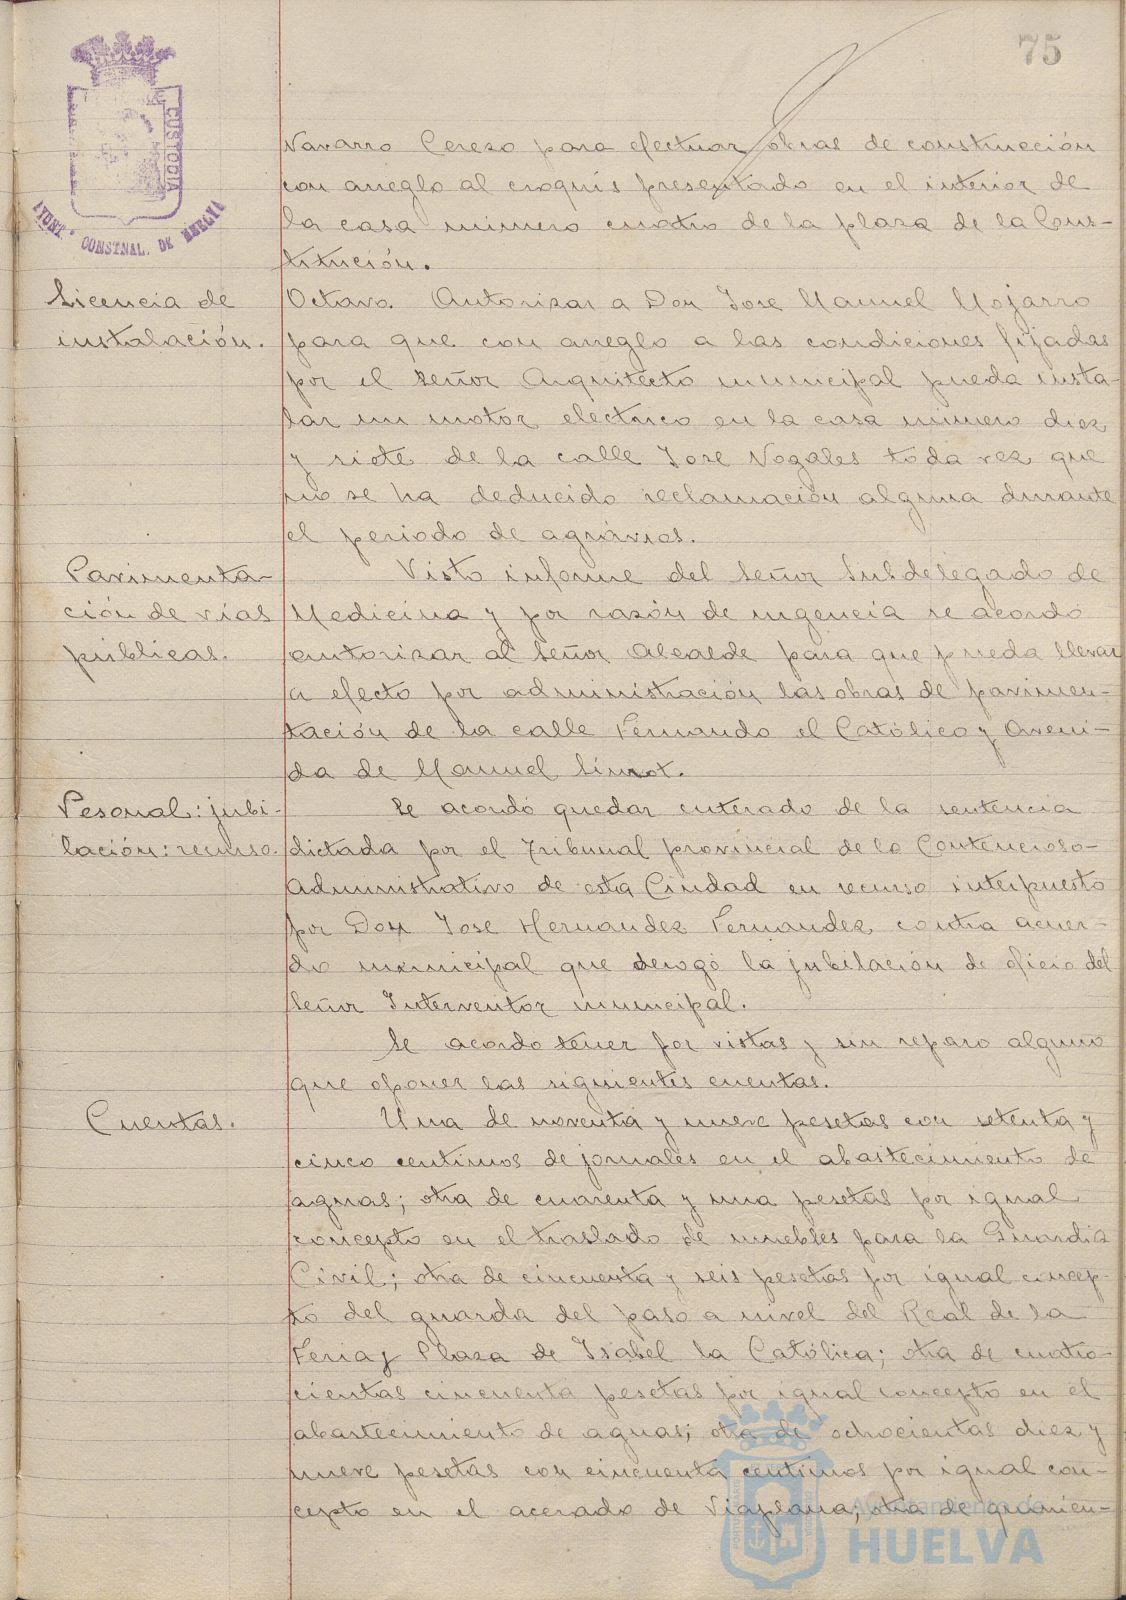 75
CUSTODIA
AYONT.º CONSTNAL. DE HUELVA
Navarro Cerezo para efectuar obras de construcción
con arreglo al croquis presentado en el interior de
la casa numero cuatro de la plaza de la Cons-
titución.
Licencia de
instalación.
Octavo. Autorizar a Don Jose Manuel Mojarro
para que con arreglo a las condiciones fijadas
por el señor Arquitecto municipal pueda insta-
lar un motor electrico en la casa número diez
y siete de la calle Jose Nogales toda vez que
no se ha deducido reclamación alguna durante
el periodo de agravios.
Pavimenta-
ción de vias
públicas.
Visto informe del señor Subdelegado de
Medicina y por razón de urgencia se acordó
autorizar al señor Alcalde para que pueda llevar
a efecto por administración las obras de pavimen-
tación de la calle Fernando el Católico y Aveni-
da de Manuel Siurot.
Pesonal: jubi-
lación: recurso.
Se acordó quedar enterado de la sentencia
dictada por el Tribunal provincial de lo Contencioso-
Administrativo de esta Ciudad en recurso interpuesto
por Don Jose Hernandez Fernandez contra acuer-
do municipal que derogó la jubilación de oficio del
señor Interventor municipal.
Se acordo tener por vistas y sin reparo alguno
que oponer las siguientes cuentas.
Cuentas.
Una de noventa y nueve pesetas con setenta y
cinco centimos de jornales en el abastecimiento de
aguas; otra de cuarenta y una pesetas por igual
concepto en el traslado de muebles para la Guardia
Civil; otra de cincuenta y seis pesetas por igual concep-
to del guarda del paso a nivel del Real de la
Feria y Plaza de Isabel la Católica; otra de cuatro-
cientas cincuenta pesetas por igual concepto en el
abastecimiento de aguas; otra de ochocientas diez y
nueve pesetas con cincuenta centimos por igual con-
cepto en el acerado de Viaplana; otra de quinien-
Ayuntamiento de
HUELVA